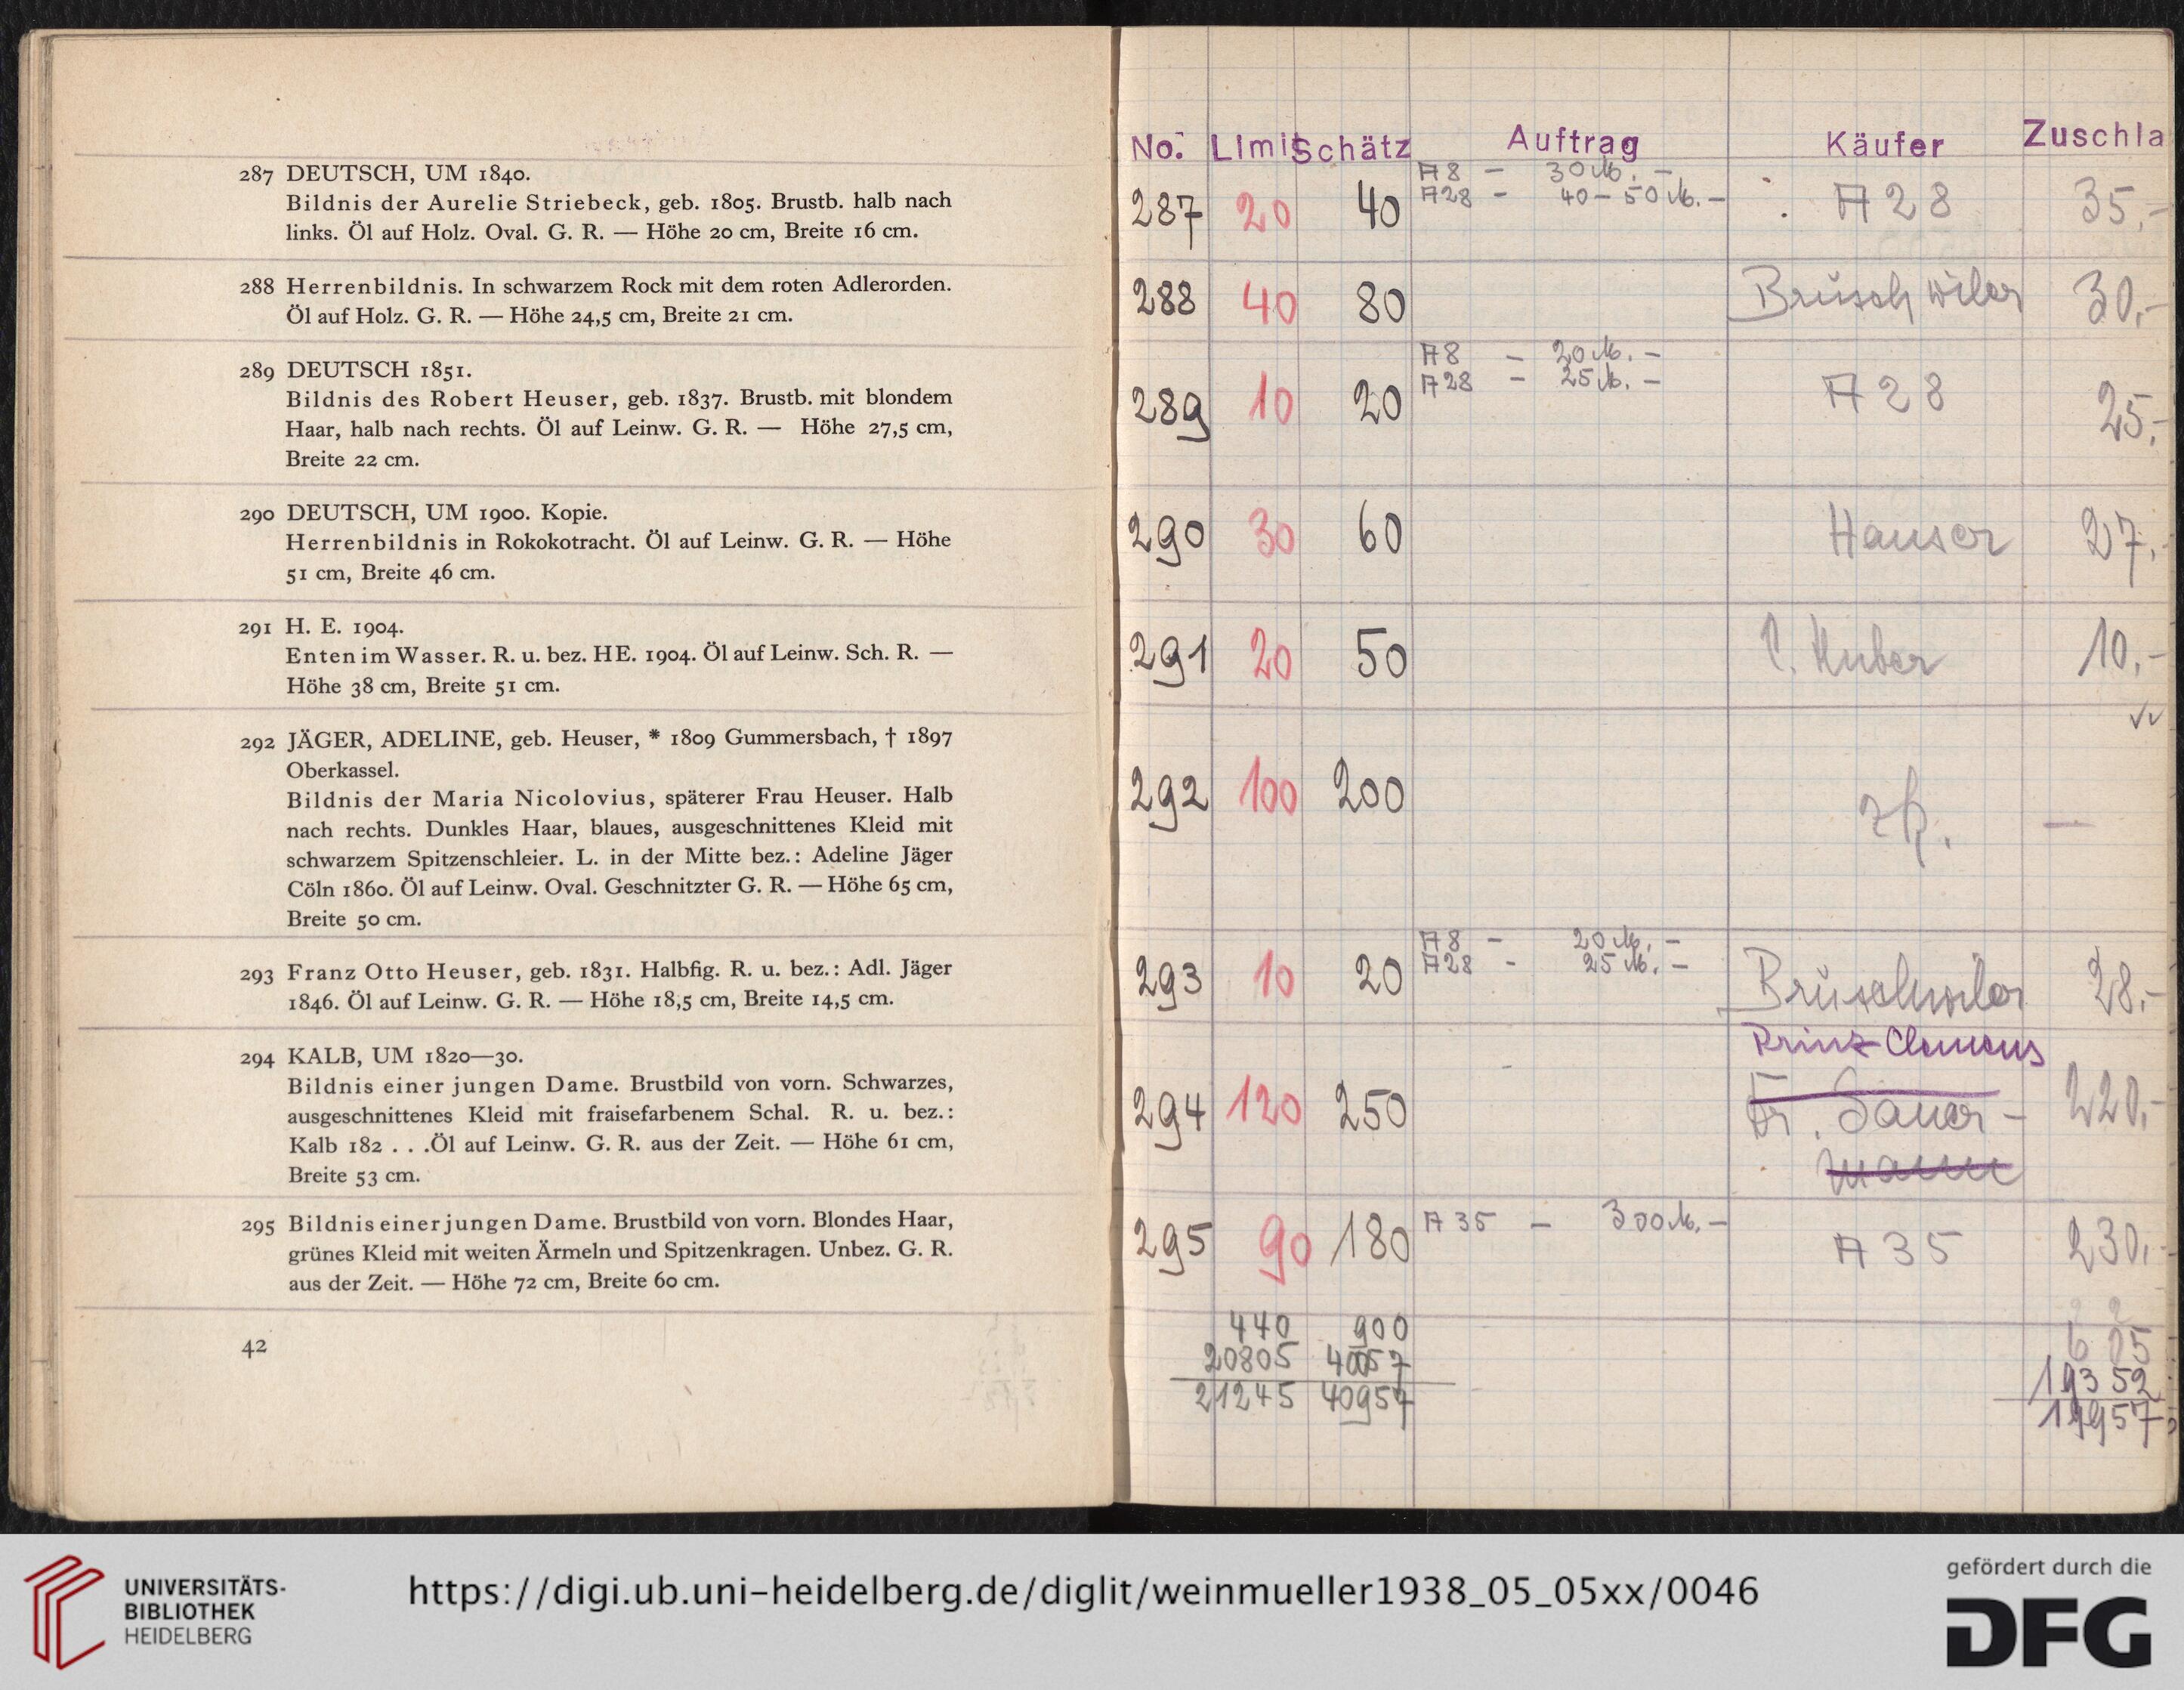 287 DEUTSCH, UM 1840.
Bildnis der Aurelie Striebeck, geb. 1805. Brustb. halb nach
links. Öl auf Holz. Oval. G. R. — Höhe 20 cm, Breite 16 cm.
288 Herrenbildnis. In schwarzem Rock mit dem roten Adlerorden.
Öl auf Holz. G. R. — Höhe 24,5 cm, Breite 21 cm.
289 DEUTSCH 1851.
Bildnis des Robert Heuser, geb. 1837. Brustb. mit blondem
Haar, halb nach rechts. Öl auf Leinw. G. R. — Höhe 27,5 cm,
Breite 22 cm.
290 DEUTSCH, UM 1900. Kopie.
Herrenbildnis in Rokokotracht. Öl auf Leinw. G. R. — Höhe
51 cm, Breite 46 cm.
291 H. E. 1904.
Enten im Wasser. R. u. bez. HE. 1904. Öl auf Leinw. Sch. R. —
Höhe 38 cm, Breite 51 cm.
292 JÄGER, ADELINE, geb. Heuser, * 1809 Gummersbach, † 1897
Oberkassel.
Bildnis der Maria Nicolovius, späterer Frau Heuser. Halb
nach rechts. Dunkles Haar, blaues, ausgeschnittenes Kleid mit
schwarzem Spitzenschleier. L. in der Mitte bez.: Adeline Jäger
Cöln 1860. Öl auf Leinw. Oval. Geschnitzter G. R. — Höhe 65 cm,
Breite 50 cm.
293 Franz Otto Heuser, geb. 1831. Halbfig. R. u. bez.: Adl. Jäger
1846. Öl auf Leinw. G. R. — Höhe 18,5 cm, Breite 14,5 cm.
294 KALB, UM 1820—30.
Bildnis einer jungen Dame. Brustbild von vorn. Schwarzes,
ausgeschnittenes Kleid mit fraisefarbenem Schal. R. u. bez.:
Kalb 182 . . .Öl auf Leinw. G. R. aus der Zeit. — Höhe 61 cm,
Breite 53 cm.
295 Bildnis einer jungen Dame. Brustbild von vorn. Blondes Haar,
grünes Kleid mit weiten Ärmeln und Spitzenkragen. Unbez. G. R.
aus der Zeit. — Höhe 72 cm, Breite 60 cm.
42
No. Limit Schätz Auftrag Käufer Zuschla
A 8 – 30 M. –
A 28 – 40 – 50 M. –
287 20 40 A 28 35,–
288 40 80 Brüschwiler 30,–
A 8 – 20 M. –
A 28 – 25 M. –
289 10 20 A 28 25,–
290 30 60 Hauser 27,–
291 20 50 Huber 10,–
292 100 200 –
A 8 – 20 M. –
A 28 – 25 M. –
293 10 20 Brüschwiler 28,–
Prinz Clemens
294 120 250 Dr. Sauer- 220,–
mann
295 90 180 A 35 – 300 M. – A 35 230,–
440 900 605
20805 40057 19352
21245 40957 19957
UNIVERSITÄTS-
BIBLIOTHEK
HEIDELBERG
https://digi.ub.uni-heidelberg.de/diglit/weinmueller1938_05_05xx/0046
gefördert durch die
DFG